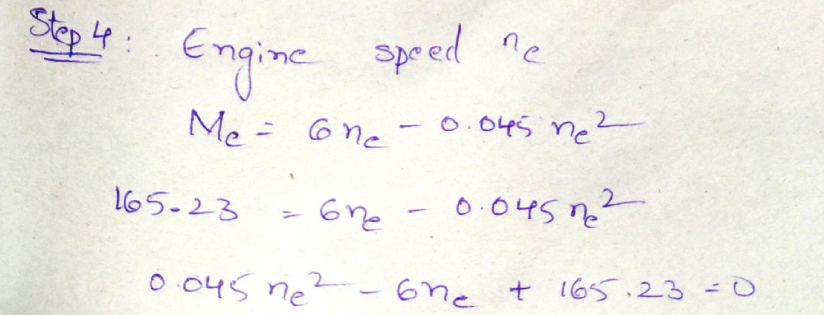 Step 4: Engine speed nₑ
Mₑ = 6nₑ - 0.045 nₑ²
165.23 = 6nₑ - 0.045 nₑ²
0.045 nₑ² - 6nₑ + 165.23 = 0